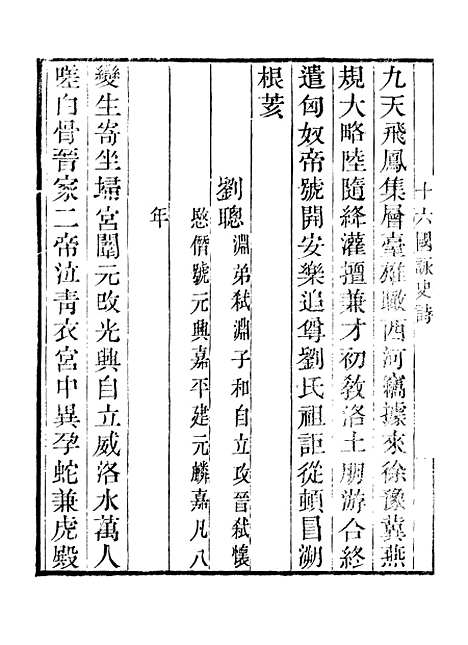 十六國詠史詩
九天飛鳳集層臺雄瞰西河竊據來徐豫冀燕
規大略陸隨絳灌擅兼才初敎洛土朋游合終
遣匈奴帝號開安樂追尊劉氏祖詎從頓冒溯
根荄
劉聰淵弟弒淵子和自立攻晉弒懷
愍僭號元興嘉平建元麟嘉凡八
年
變生寄坐埽宮闈元改光興自立威洛水萬人
嗟白骨晉家二帝泣靑衣宮中異孕蛇兼虎殿